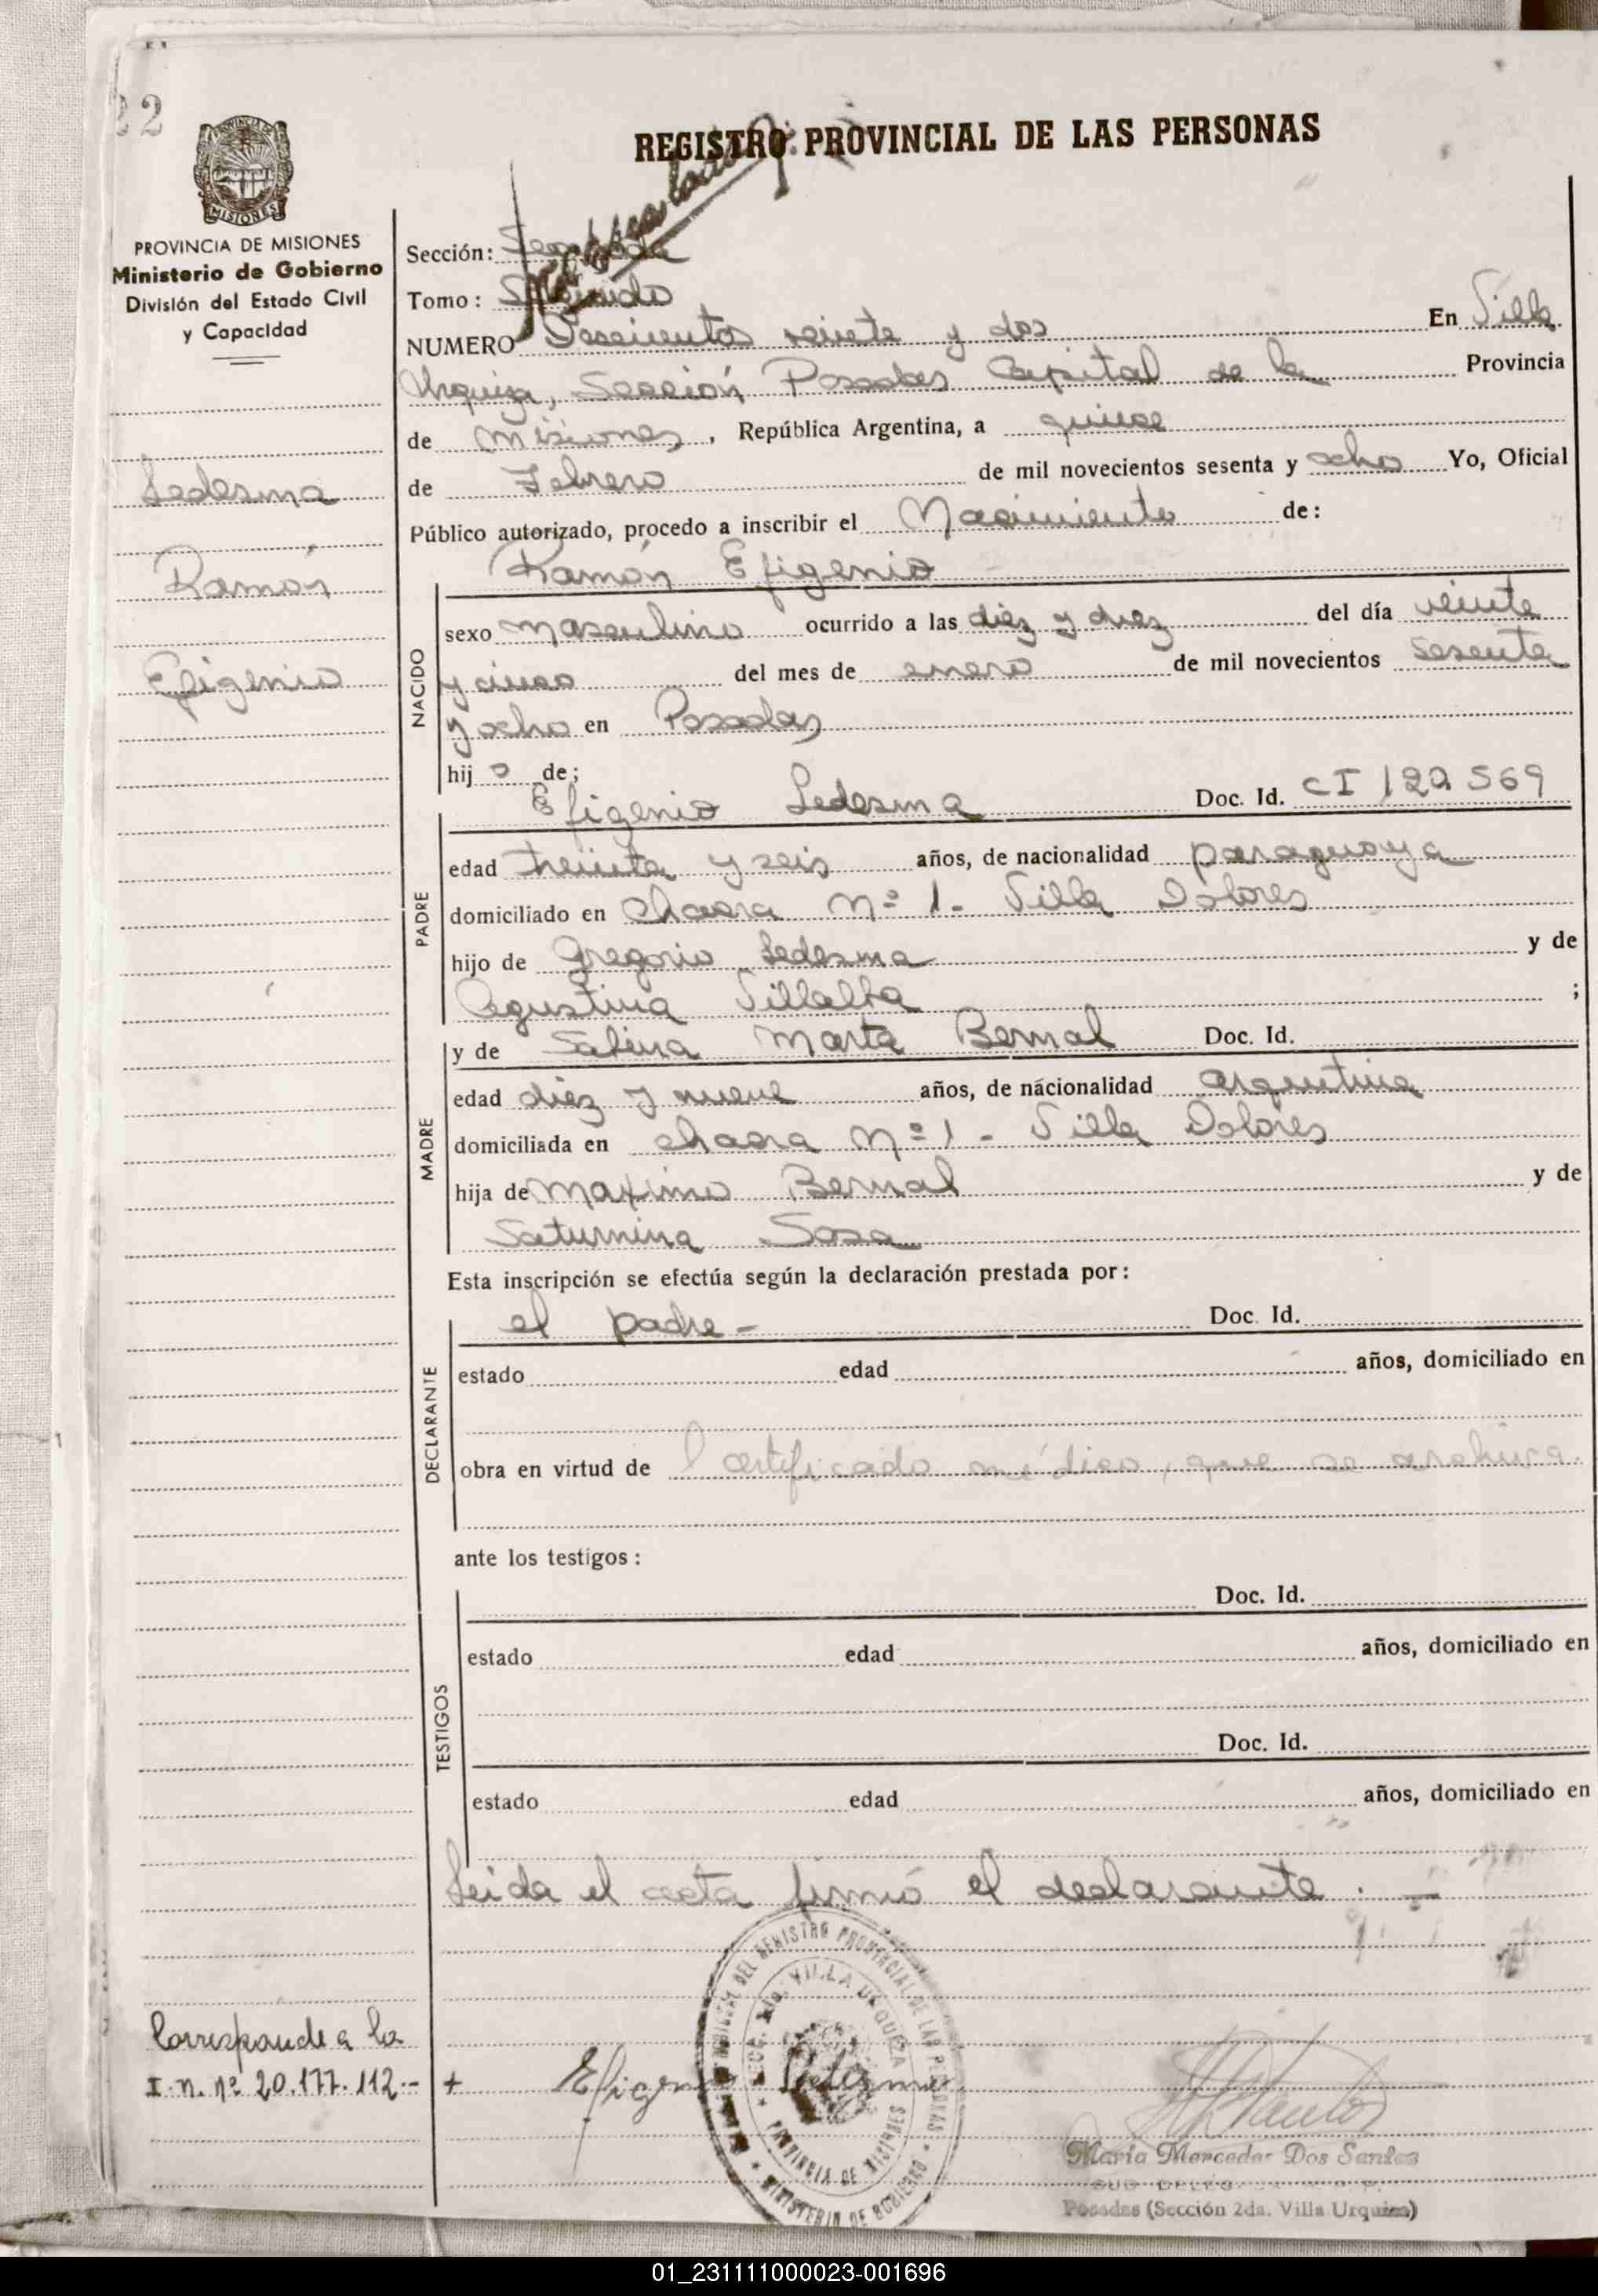 22
REGISTRO PROVINCIAL DE LAS PERSONAS
MISIONES
PROVINCIA DE MISIONES
Ministerio de Gobierno
División del Estado Civil
y Capacidad
Sección: Segunda
Tomo: Segundo
NUMERO veinte y dos En Villa
Urquiza, Sección Posadas Capital de la Provincia
de Misiones, República Argentina, a quince
de Febrero de mil novecientos sesenta y ocho Yo, Oficial
Público autorizado, procedo a inscribir el Nacimiento de:
Ledesma
Ramón
Efigenio
Ramón Efigenio
NACIDO
sexo masculino ocurrido a las diez y diez del día veinte
y cinco del mes de enero de mil novecientos sesenta
y ocho en Posadas
hij o de;
Efigenio Ledesma Doc. Id. CI 122569
PADRE
edad treinta y seis años, de nacionalidad paraguaya
domiciliado en chacra Nº 1- Villa Dolores
hijo de Gregorio Ledesma y de
Agustina Villalba ;
y de Sabina Marta Bernal Doc. Id.
MADRE
edad diez y nueve años, de nácionalidad argentina
domiciliada en chacra Nº 1 - Villa Dolores
hija de Maximo Bernal y de
Saturnina Sosa
Esta inscripción se efectúa según la declaración prestada por:
el padre - Doc. Id.
DECLARANTE
estado edad años, domiciliado en
obra en virtud de l certificado médico, que se archiva.
ante los testigos:
Doc. Id.
TESTIGOS
estado edad años, domiciliado en
Doc. Id.
estado edad años, domiciliado en
Leida el acta firmó el declarante. -
Corresponde a la
I. N. Nº 20.177.112.-
+ Efigenio Ledesma
DEL REGISTRO PROVINCIAL DE LAS PERSONAS
VILLA URQUIZA
PROVINCIA DE MISIONES
MINISTERIO DE GOBIERNO
María Mercedes Dos Santos
Posadas (Sección 2da. Villa Urquiza)
01_231111000023-001696